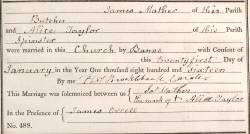 James Mather of this Parish
Butcher
and Alice Taylor of this Parish
Spinster
were married in this Church by Banns with Consent of
this twenty first Day of
January in the Year One thousand eight hundred and sixteen
By me
This Marriage was solemnized between us { Jas Mather
the mark of Alice Taylor
In the Presence of { James
No. 488.